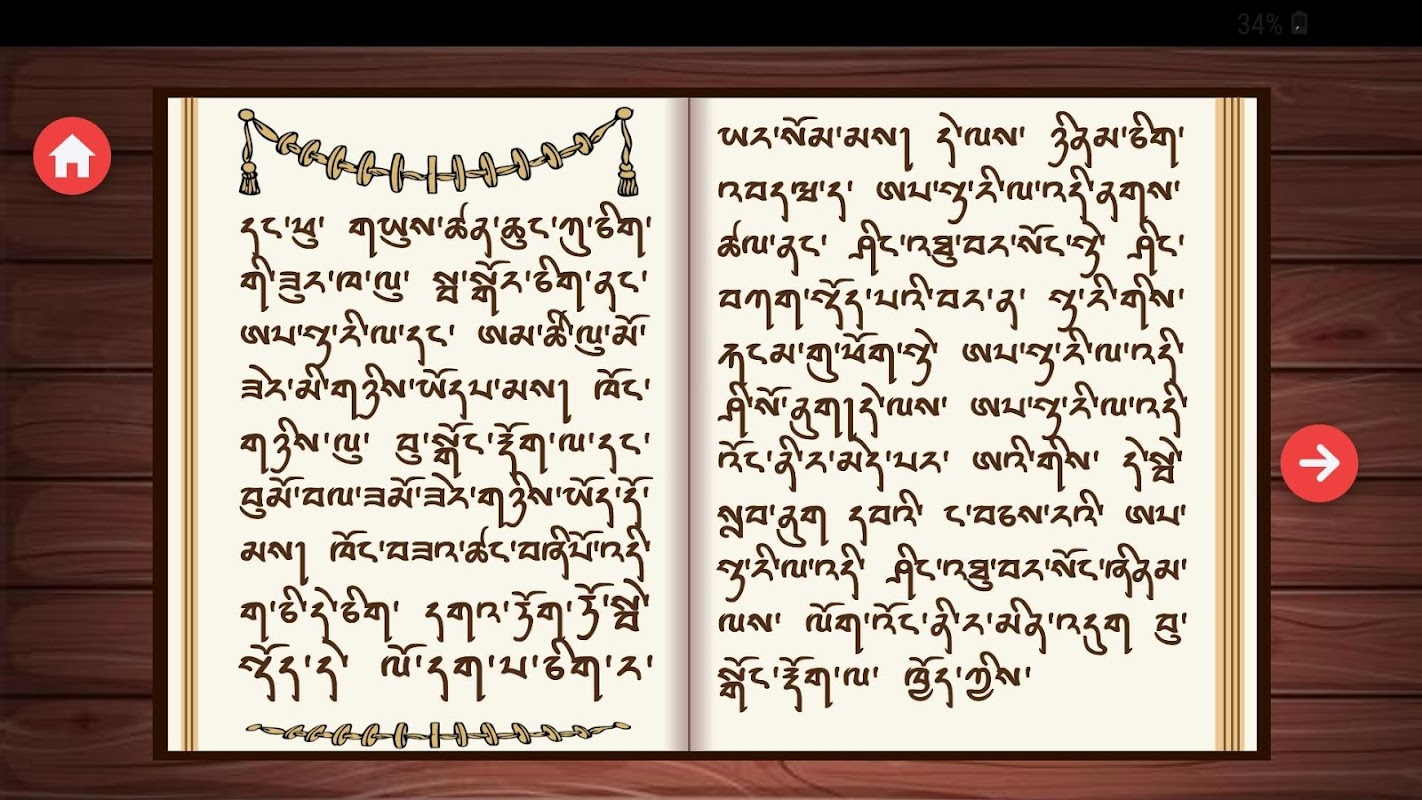 34%
དང་ཕུ་ གཡུས་ཚན་ཆུང་ཀུ་ཅིག་
གི་ཟུར་ཁ་ལུ་ སྦ་སྒོར་ཅིག་ནང་
ཨཔ་ལྟ་རི་ལ་དང་ ཨམ་ཚོ་ལུ་མོ་
ཟེར་མི་གཉིས་ཡོདཔ་མས། ཁོང་
གཉིས་ལུ་ བུ་སྒོང་རྡོག་ལ་དང་
བུམོ་བལ་ཟམོ་ཟེར་གཉིས་ཡོད་དོ་
མས། ཁོང་བཟའ་ཚང་བཞིཔོ་འདི་
ག་ཅི་དེ་ཅིག་ དགའ་ཏོག་ཏོ་སྦེ་
སྡོད་དེ་ ལོ་དག་པ་ཅིག་ར་
ཡར་སོམ་མས། དེ་ལས་ ཉིནམ་ཅིག་
འབད་ཝ་ད་ ཨཔ་ལྟ་རི་ལ་འདི་ནགས་
ཚལ་ནང་ ཤིང་འཐུ་བར་སོང་སྟེ་ ཤིང་
བཀག་སྡོད་པའི་བར་ན་ ལྟ་རི་གིས་
རྐངམ་གུ་ཕོག་སྟེ་ ཨཔ་ལྟ་རི་ལ་འདི་
ཤི་སོ་ནུག།དེ་ལས་ ཨཔ་ལྟ་རི་ལ་འདི་
འོང་ནི་ར་མེད་པར་ ཨའི་གིས་ དེ་སྦེ་
སླབ་ནུག དབའི་ ང་བཅས་རའི་ ཨཔ་
ལྟ་རི་ལ་འདི་ ཤིང་འཐུ་བར་སོང་ཞིནམ་
ལས་ ལོག་འོང་ནི་ར་མིན་འདུག བུ་
སྒོང་རྡོག་ལ་ ཁྱོད་ཀྱིས་